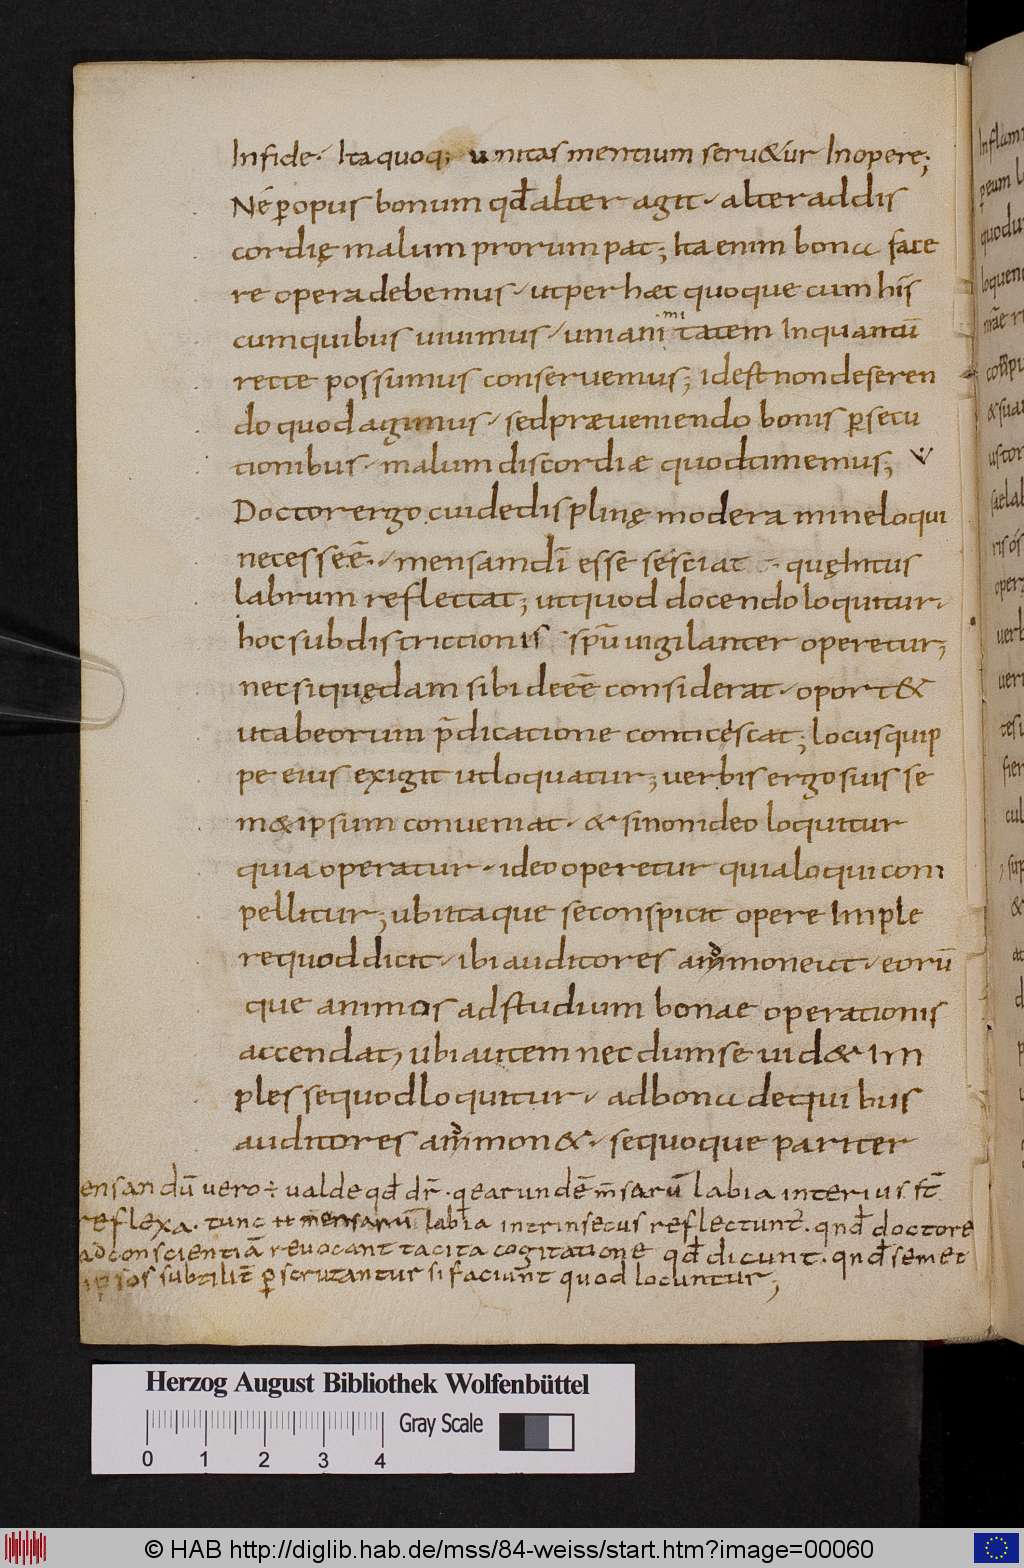 In fide. Ita quoq; unitas mentium seru&ur In opere;
Né p̱opus bonum qđ alter agit. alter ad dis
cordię malum prorumpat; Ita enim bona face
re opera debemus. ut per haec quoque cum his
cum quibus uiuimus. unanimitatem Inquantū
recte possumus conseruemus; id est non deseren
do quod agimus. sed praeueniendo bonis p̱secu
tionibus. malum discordiae quod timemus;
Doctor ergo cui de disciplinę moderamine loqui
necesse ē. mensam dn̄i esse se sciat quę Intus
labrum reflectat; ut quod docendo loquitur.
hoc sub districtionis sp̄u uigilanter operetur;
nec si quędam sibi deeē considerat. oport&
ut ab eorum p̄dicatione conticescat; locus quip
pe eius exigit ut loquatur; uerbis ergo suis se
m&ipsum conueniat. & si non ideo loquitur
quia operatur. ideo operetur quia loqui com
pellitur; ubi itaque se conspicit opere Imple
re quod dicit. ibi auditores ammoneat. eorū
que animos ad studium bonae operationis
accendat, ubi autem necdum se uid& Im
plesse quod loquitur. ad bona de quibus
auditores ammon&. se quoque pariter
ensandū uero ÷ ualde qđ dr̄. q earundē m̄sarū labia interius st̄
reflexa. tunc mensarū labia intrinsecus reflectunt̄. qn̄d doctore
ad conscientiā reuocant tacita cogitatione qđ dicunt. qn̄d semet
ipsos subtilit̄ p̱scrutantur si faciunt quod locuntur;
Inflam
peum
quodu
loquen
uerb
Herzog August Bibliothek Wolfenbüttel
Gray Scale
0 1 2 3 4
© HAB http://diglib.hab.de/mss/84-weiss/start.htm?image=00060